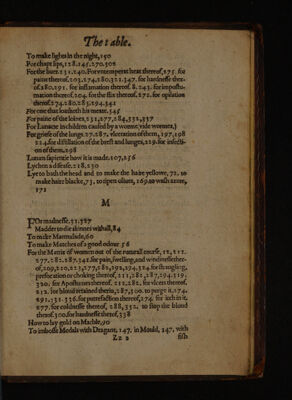 The table.
To make lights in the night, 150
For chapt lips, 128. 145. 270. 302
For the liuer 131. 140. For vntemperat heat thereof, 175. for
paine thereof 203. 274. 280. 321. 347. for hardnesse ther-
of. 280. 291. for inflamation thereof. 8. 243. for impostu-
mation thereof. 204. for the flix thereof. 272. for opilation
thereof 274. 280. 283. 294. 341
For one that loatheth his meate. 345
For paine of the loines, 231, 277, 284, 332, 337
For Lunacie in children caused by a worme; vide wormes,
For griefe of the lungs. 27. 287. vlceration of them, 197, 198
224. for distillation of the brest and lunges, 229. for infecti-
on of them, 298
Lutum sapientie how it is made, 107, 256
Lychen a disease, 218, 230
Lye to bath the head and to make the haire yellowe, 72. to
make haire blacke, 73. to ripen oliues, 169. to wash azure,
172
M
FOr madnesse. 31. 327
Madder to die skinnes withall, 84
To make Marmalade, 60
To make Matches of a good odour 56
For the Matrix of women out of the naturall course, 12, 211.
277. 281. 287. 342. for pain, swelling, and windinesse ther-
of, 209, 210, 213, 277, 281, 292, 294, 324. for strangling,
prefocation or choking thereof, 211, 281, 287, 294, 319.
320. for Apostumes thereof. 212, 281. for vlcers thereof,
212. for bloud retained therin, 287, 300. to purge it. 274.
291. 331. 336. for putrefaction thereof, 274. for itch in it.
277. for coldnesse thereof, 288, 352. to stop the bloud
thereof. 300. for hardnesse therof, 338
How to lay gold on Marble, 90
To imbosse Medals with Dragant, 147. in Mould, 147, with
Zz 2 fish